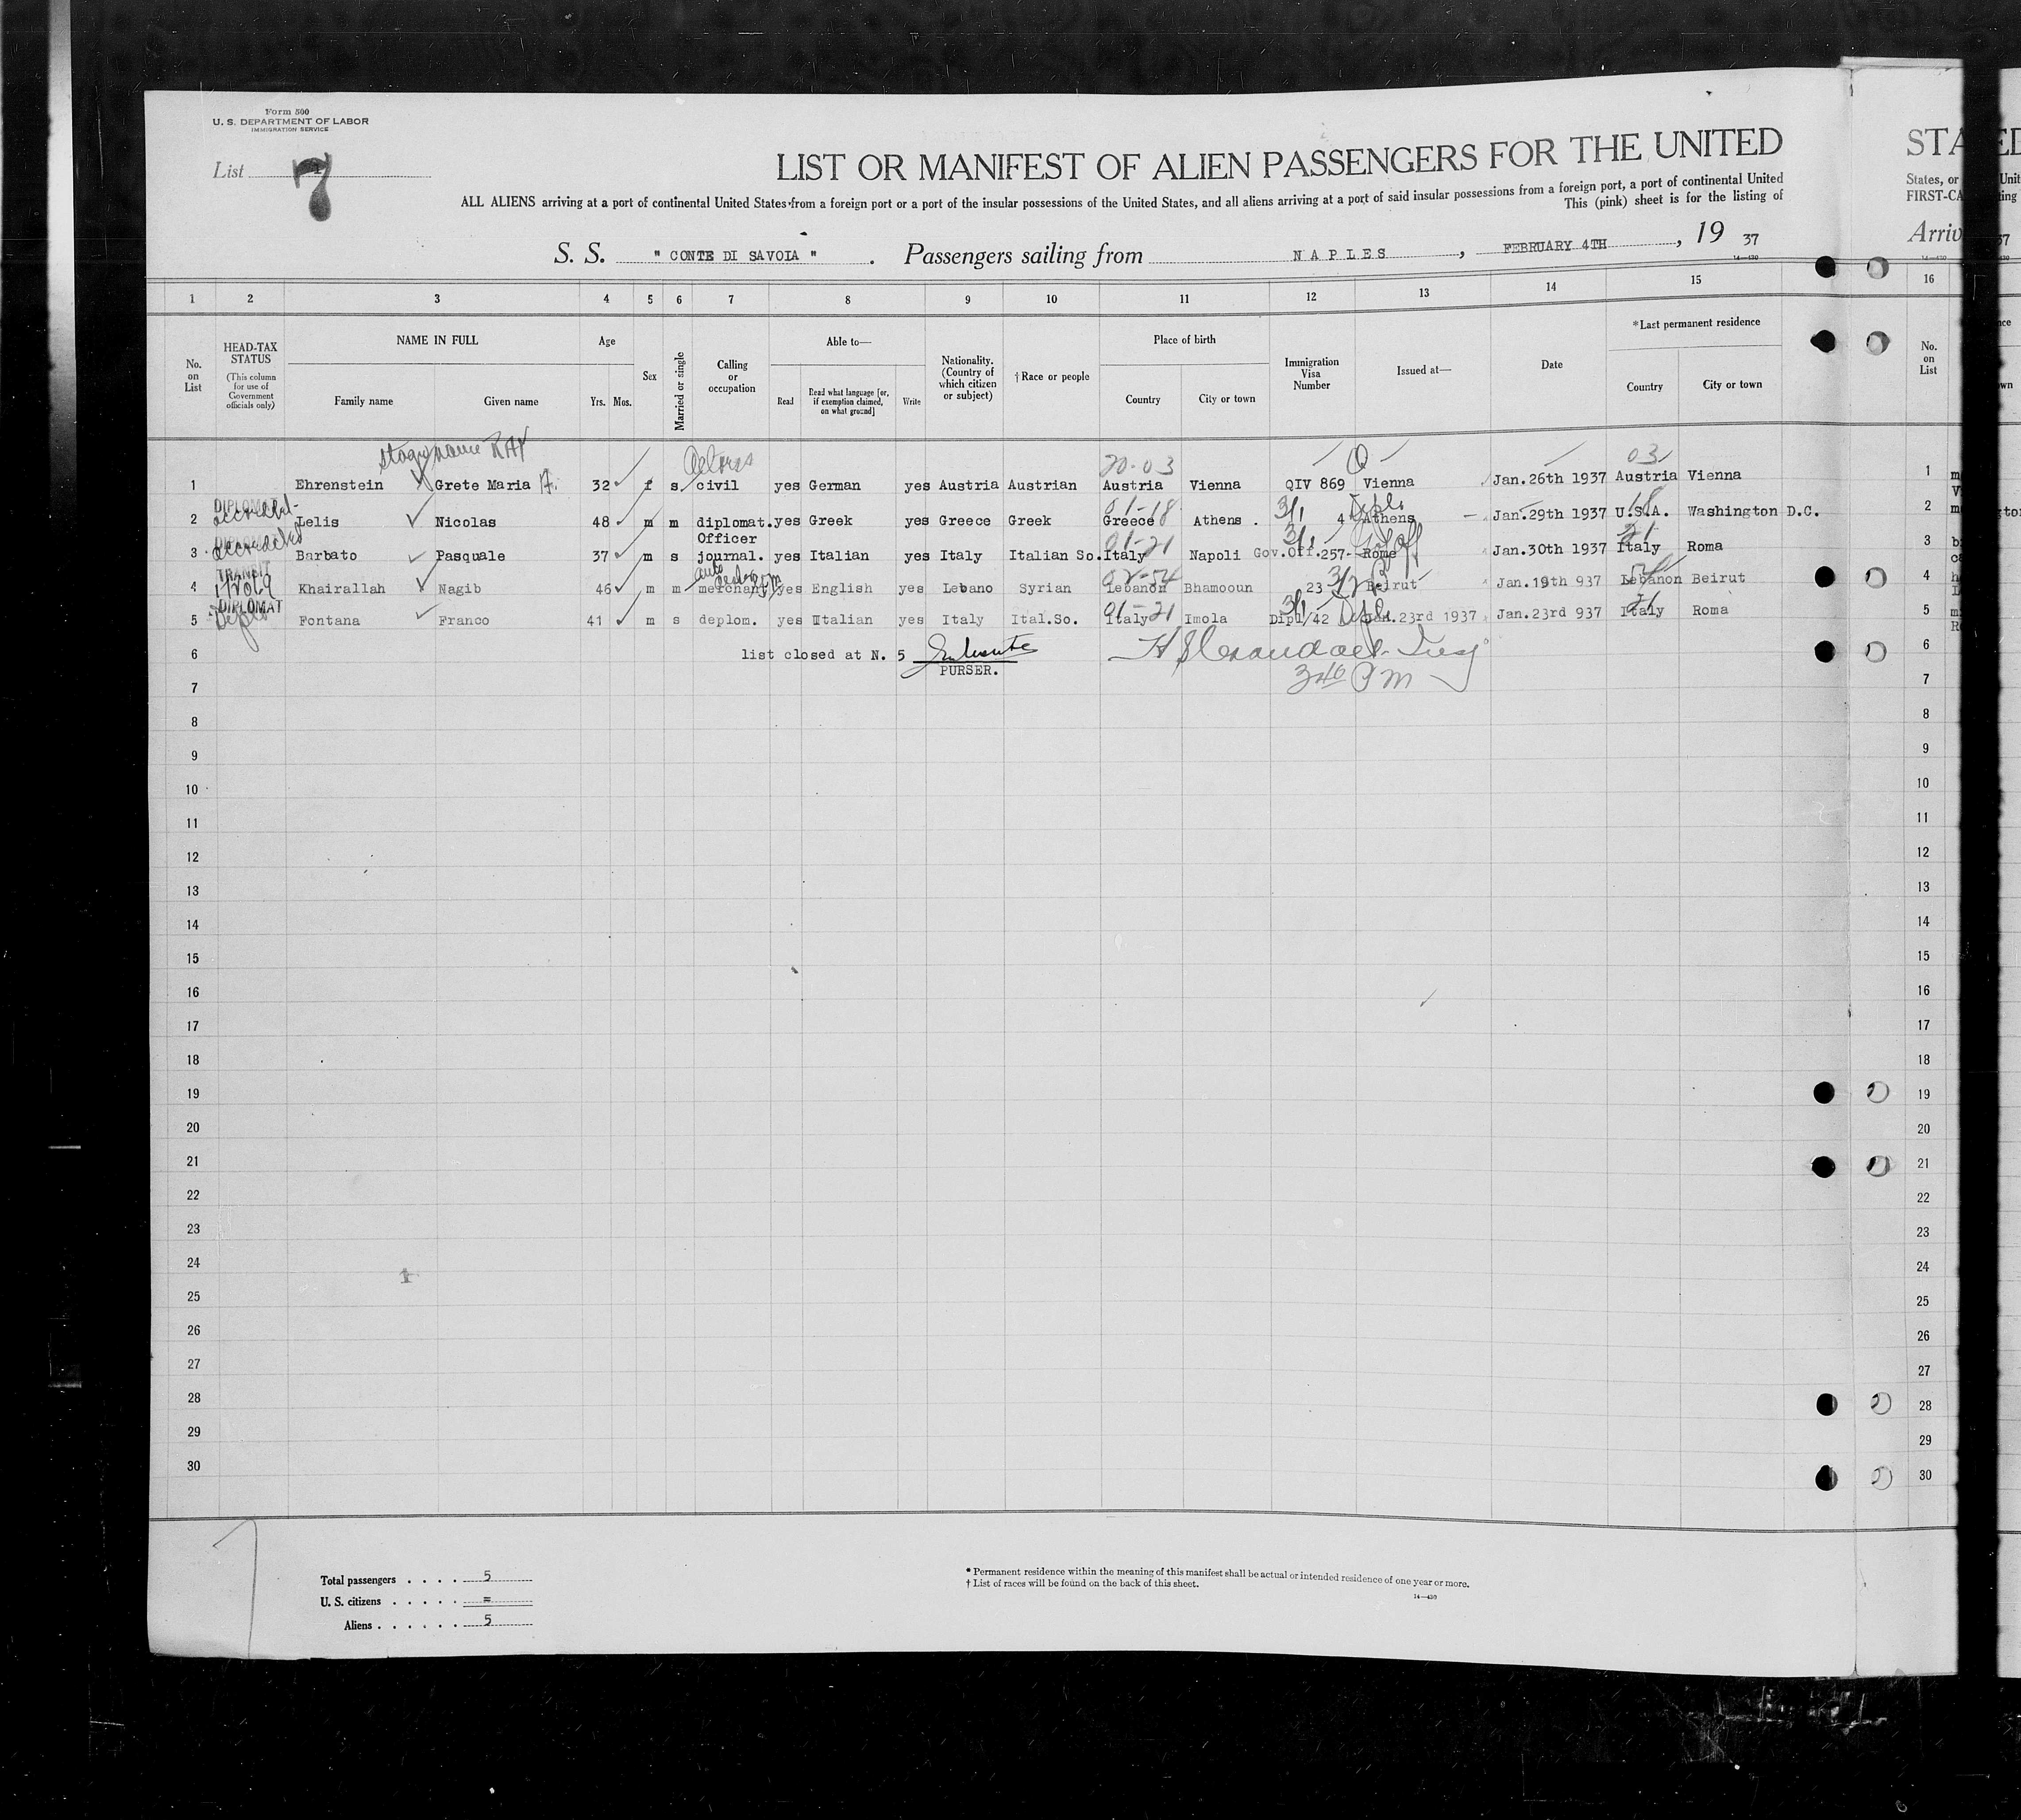 Form 500
U. S. DEPARTMENT OF LABOR
IMMIGRATION SERVICE
List 7
LIST OR MANIFEST OF ALIEN PASSENGERS FOR THE UNITED
ALL ALIENS arriving at a port of continental United States from a foreign port or a port of the insular possessions of the United States, and all aliens arriving at a port of said insular possessions from a foreign port, a port of continental United
This (pink) sheet is for the listing of
S. S. " CONTE DI SAVOIA ". Passengers sailing from NAPLES, FEBRUARY 4TH, 19 37
14—430
STA
States, or
FIRST-CA
Arriv
1 2 3 4 5 6 7 8 9 10 11 12 13 14 15 16
No. on List
HEAD-TAX STATUS
(This column for use of Government officials only)
NAME IN FULL
Family name Given name
Age
Yrs. Mos.
Sex
Married or single
Calling or occupation
Able to—
Read
Read what language [or, if exemption claimed, on what ground]
Write
Nationality. (Country of which citizen or subject)
†Race or people
Place of birth
Country City or town
Immigration Visa Number
Issued at—
Date
*Last permanent residence
Country City or town
No. on List
stage name RAY Actress 20-03 Q 03
1 Ehrenstein Grete Maria 32 f s civil yes German yes Austria Austrian Austria Vienna QIV 869 Vienna Jan.26th 1937 Austria Vienna 1
DIPLOMAT 01-18 3/1 Diplo 18
2 Lelis Nicolas 48 m m diplomat. yes Greek yes Greece Greek Greece Athens . 4 Athens Jan.29th 1937 U.S.A. Washington D.C. 2
accredited Officer 01-21 3/1 21
3 Barbato Pasquale 37 m s journal. yes Italian yes Italy Italian So. Italy Napoli Gov.Off.257- Rome Jan.30th 1937 Italy Roma 3
TRANSIT auto 02-54 3/2 54
4 Khairallah Nagib 46 m m merchant yes English yes Lebano Syrian Lebanon Bhamooun 23 Beirut Jan.19th 937 Lebanon Beirut 4
DIPLOMAT 01-21 3/1 21
5 Fontana Franco 41 m s deplom. yes Italian yes Italy Ital.So. Italy Imola Dipl/42 Jan.23rd 1937 Jan.23rd 937 Italy Roma 5
6 list closed at N. 5 6
7 PURSER. 3 40 PM 7
8 8
9 9
10 10
11 11
12 12
13 13
14 14
15 15
16 16
17 17
18 18
19 19
20 20
21 21
22 22
23 23
24 24
25 25
26 26
27 27
28 28
29 29
30 30
Total passengers . . . . 5
U. S. citizens . . . . . =
Aliens . . . . . . 5
* Permanent residence within the meaning of this manifest shall be actual or intended residence of one year or more.
† List of races will be found on the back of this sheet.
14—430